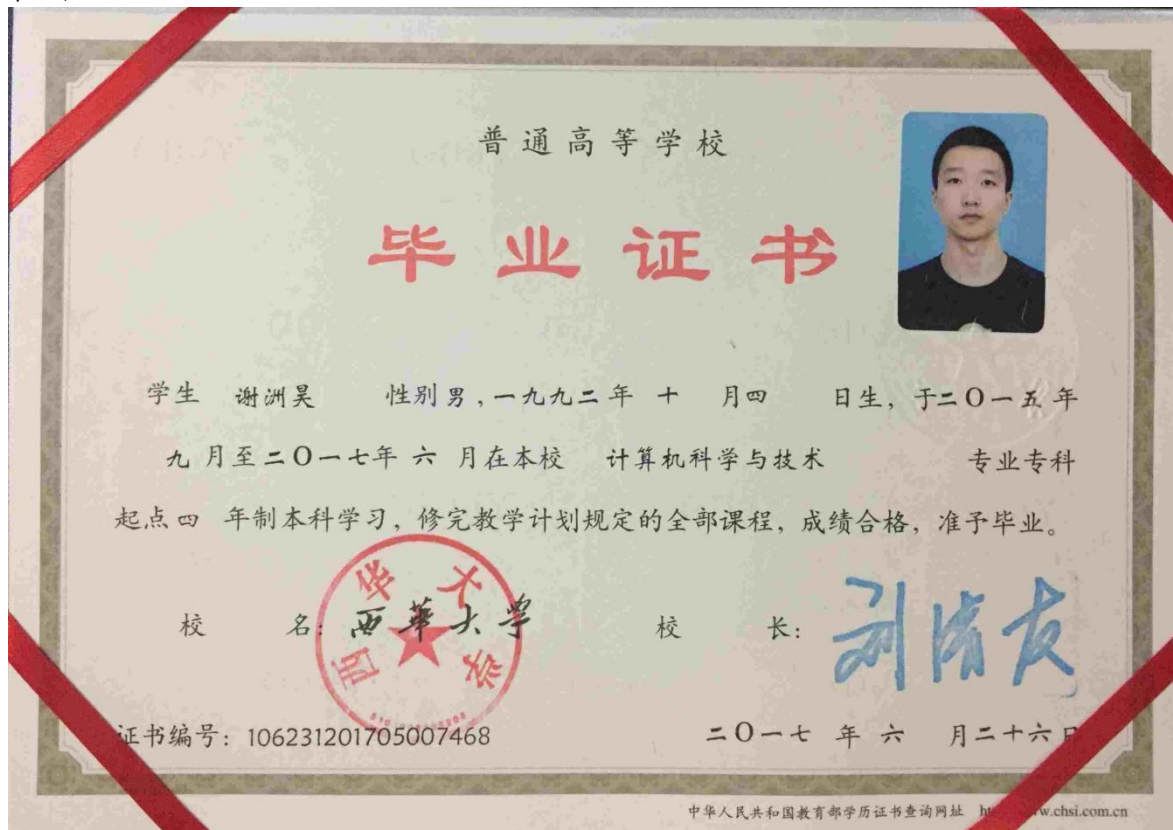 普通高等学校
毕业证书
学生 谢洲昊 性别 男，一九九二年 十 月四 日生，于二〇一五年
九 月至二〇一七年 六 月在本校 计算机科学与技术 专业专科
起点四 年制本科学习，修完教学计划规定的全部课程，成绩合格，准予毕业。
校 名：西華大学 校 长：
西华大学
证书编号：106231201705007468 二〇一七 年 六 月二十六日
中华人民共和国教育部学历证书查询网址 w.chsi.com.cn